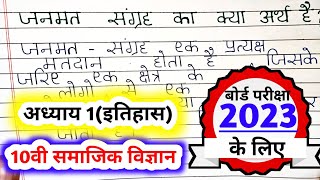 जनमत संग्रह का क्या अर्थ है?
जनमत - संग्रह एक प्रत्यक्ष
मतदान होता है जिसके
जरिए एक क्षेत्र के
लोगों से एक
अध्याय 1(इतिहास)
10वी समाजिक विज्ञान
बोर्ड परीक्षा
2023
के लिए